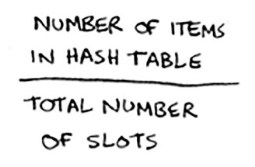 NUMBER OF ITEMS
IN HASH TABLE
TOTAL NUMBER
OF SLOTS